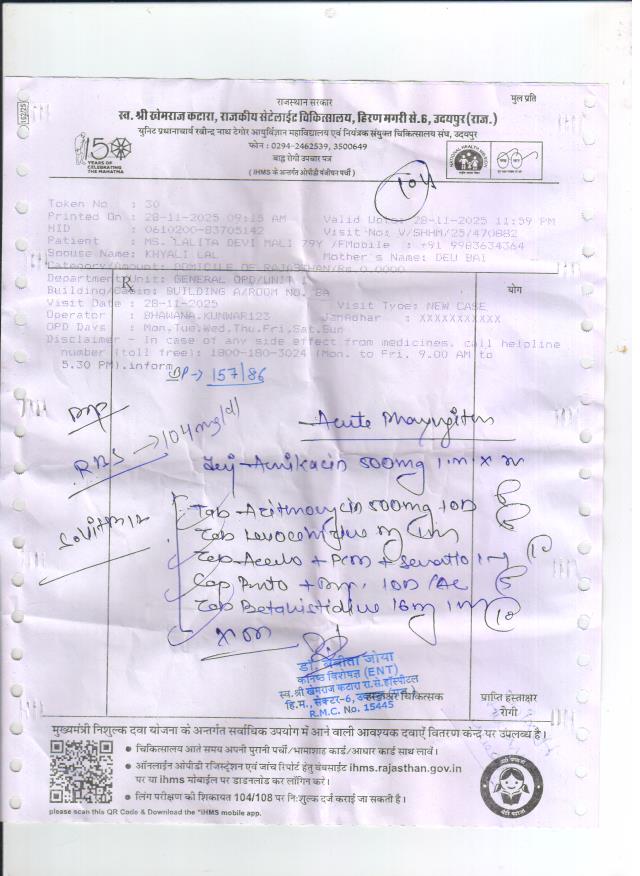 राजस्थान सरकार
मुल प्रति
स्व. श्री खेमराज कटारा, राजकीय सेटेलाईट चिकित्सालय, हिरण मगरी से.6, उदयपुर (राज.)
युनिट प्रधानाचार्य रबीन्द्र नाथ टेगोर आयुर्विज्ञान महाविद्यालय एवं नियंत्रक संयुक्त चिकित्सालय संघ, उदयपुर
फोन : 0294-2462539, 3500649
बाह्य रोगी उपचार पत्र
( IHMS के अन्तर्गत ओपीडी पंजीयन पर्ची )
YEARS OF
CELEBRATING
THE MAHATMA
Token No : 30
Printed On : 28-11-2025 09:15 AM Valid Upto: 28-11-2025 11:59 PM
HID : 0610200-83705142 Visit No: V/SHHM/25/470882
Patient : MS. LALITA DEVI MALI 79Y /F Mobile : +91 9983634364
Spouse Name: KHYALI LAL Mother's Name: DEU BAI
Category/Amount: DOMICILE OF RAJASTHAN/Rs.0.0000
Department/Unit: GENERAL OPD/UNIT
Building/Cabin: BUILDING A/ROOM NO. 8A
योग
Visit Date : 28-11-2025 Visit Type: NEW CASE
Operator : BHAWANA.KUNWAR123 JanAdhar : XXXXXXXXXXX
OPD Days : Mon,Tue,Wed,Thu,Fri,Sat,Sun
Disclaimer - In case of any side effect from medicines, call helpline
number (toll free): 1800-180-3024 (Mon. to Fri. 9.00 AM to
5.30 PM).inform
BP → 157/86
RBS → 104 mg/dl
Acute Pharyngitis
Inj - Amikacin 500mg
Tab - Azithromycin 500mg 10D
Tab Levocetirizine
Tab - Aceclo + PCM +
Cap Panto +
Tab Betahistidine 16mg
कनिष्ठ विशेषज्ञ (ENT)
स्व. श्री खेमराज कटारा रा.से.हॉस्पीटल
हि.म., सेक्टर-6,
R.M.C. No. 15445
चिकित्सक
प्राप्ति हस्ताक्षर
रोगी
मुख्यमंत्री निशुल्क दवा योजना के अन्तर्गत सर्वाधिक उपयोग में आने वाली आवश्यक दवाऐं वितरण केन्द्र पर उपलब्ध है।
● चिकित्सालय आते समय अपनी पुरानी पर्ची/भामाशाह कार्ड/आधार कार्ड साथ लावें।
● ऑनलाईन ओपीडी रजिस्ट्रेशन एवं जांच रिपोर्ट हेतु वेबसाईट ihms.rajasthan.gov.in
पर या ihms मोबाईल पर डाउनलोड कर लॉगिन करें।
● लिंग परीक्षण की शिकायत 104/108 पर नि:शुल्क दर्ज कराई जा सकती है।
please scan this QR Code & Download the "IHMS mobile app.